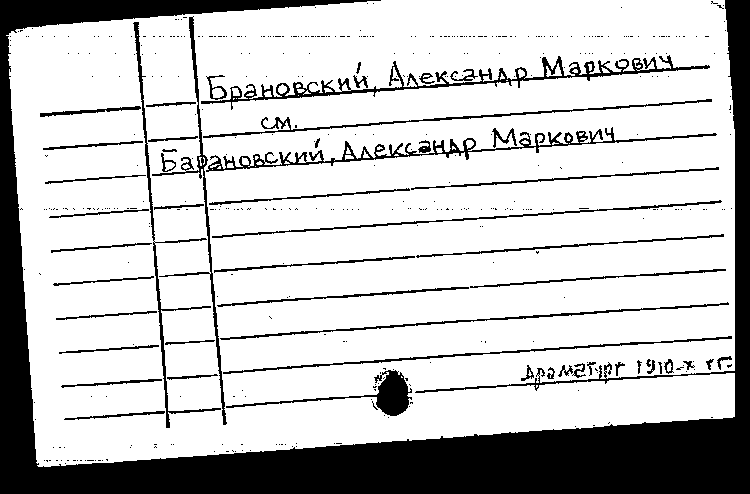 Брановский, Александр Маркович
см.
Барановский, Александр Маркович
драматург 1910-х гг.